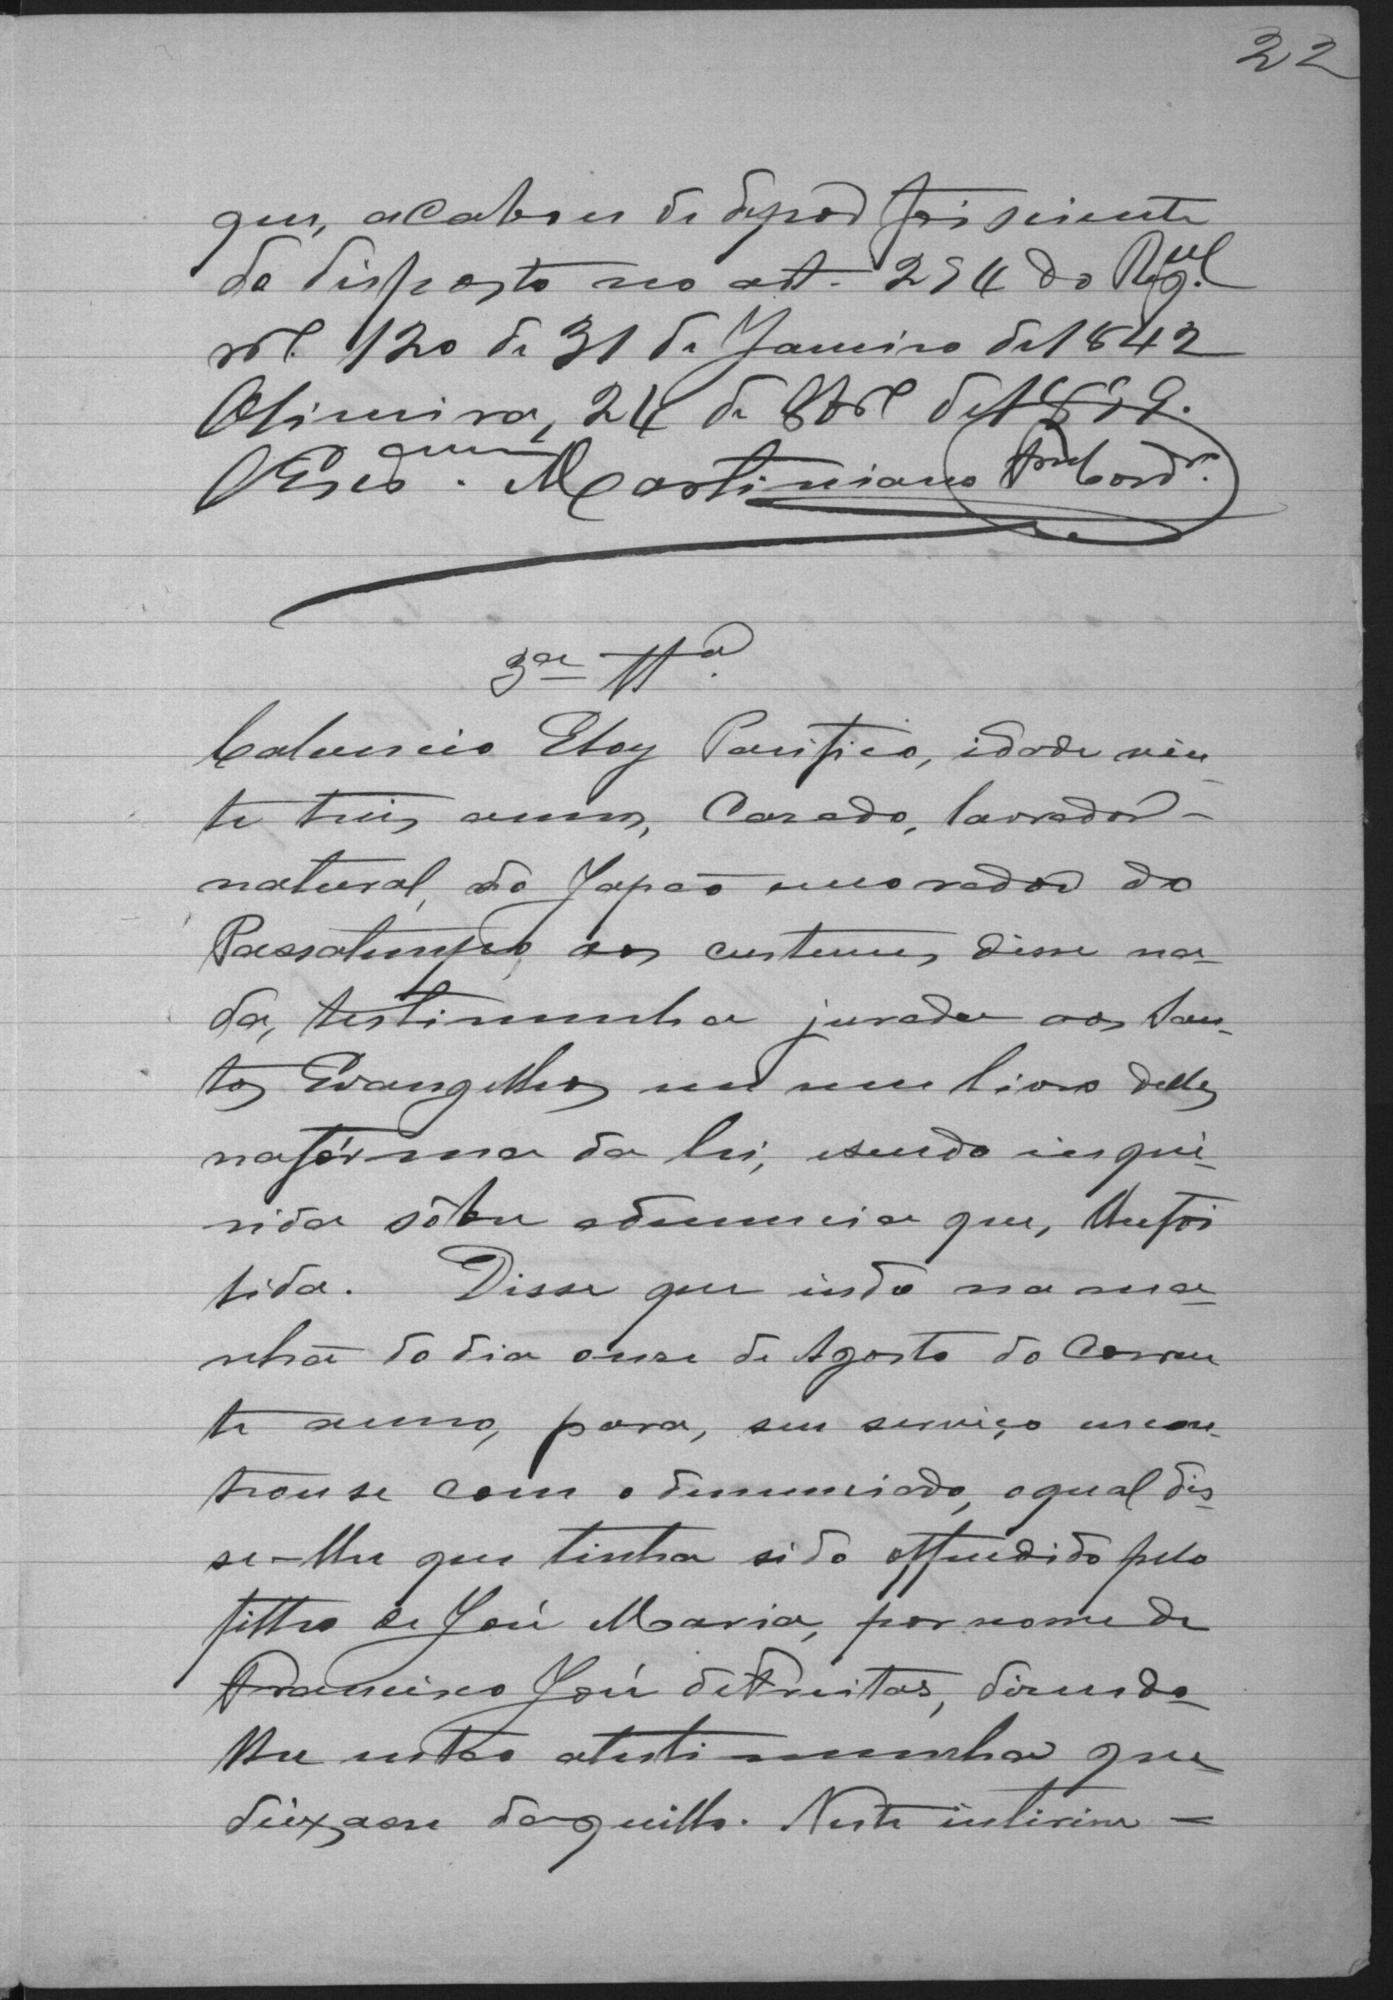 22
que, acabou de depôr foi sciente
do disposto no art. 294 do Regul.
nº. 120 de 31 de Janeiro de 1842
Oliveira, 24 de 8brº de 1899.
Martiniano Frz Cordrº.
3ª Ttª.
Eloy Pacifico, idade vin_
te treis annos, Casado, lavrador -
natural, do Japão e morador do
Passatempo, aos custumes disse na_
da, testimunha jurada aos San_
tos Evangelhos em um livro delles
na fórma da lei, e sendo inqui_
rida sôbre a denuncia que, lhe foi
lida. Disse que indo na ma_
nhã do dia onze de Agosto do Corren
te anno, para, seu serviço encon_
trou se com o denunciado, o qual dis_
se-lhe que tinha sido offendido pelo
filho de José Maria, por nome de
Francisco José de Freitas, disendo_
lhe então a testimunha que_
deixasse daquillo. Neste interim =